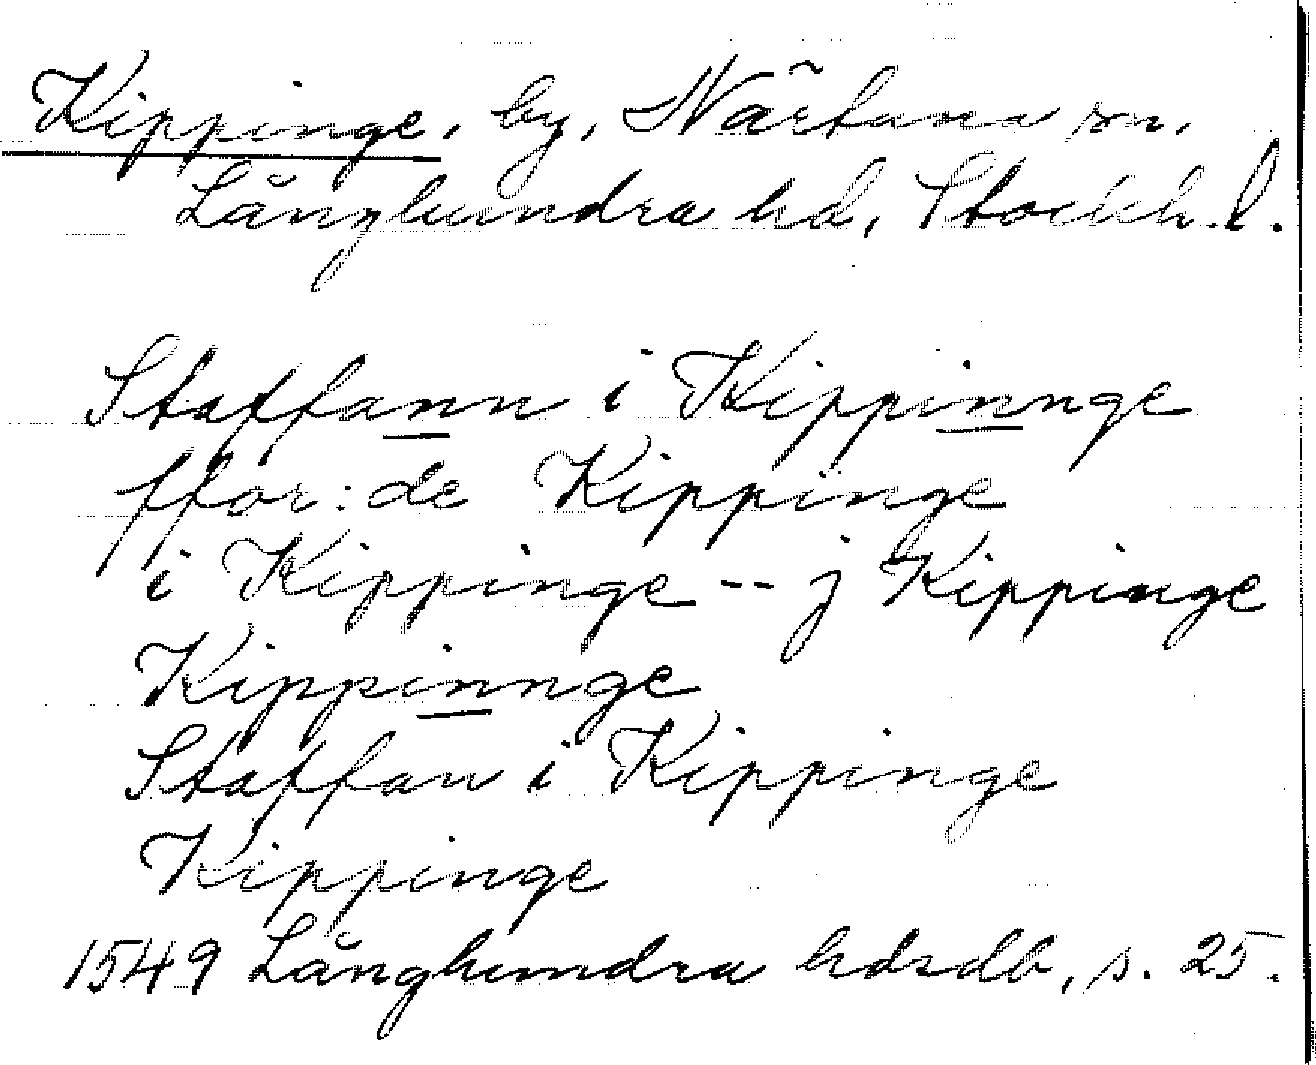 Kippinge, by, Närtuna sn,
Långhundra hd, Stockh. l.
Staffann i Kippinnge
ffor: de Kippinge
i Kippinge -- j Kippinge
Kippinnge
Staffan i Kippinge
Kippinge
1549 Långhundra hdrdb, s. 25.